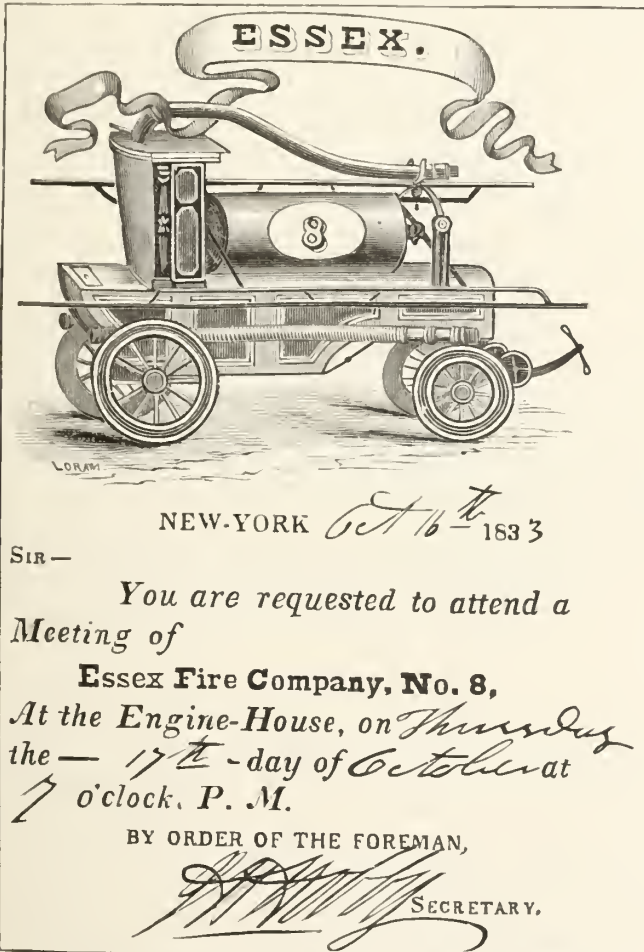 ESSEX.
8
LORAM.
NEW-YORK Oct 16th 1833
SIR—
You are requested to attend a
Meeting of
Essex Fire Company, No. 8,
At the Engine-House, on Thursday
the — 17th - day of October at
7 o'clock. P. M.
BY ORDER OF THE FOREMAN,
SECRETARY.